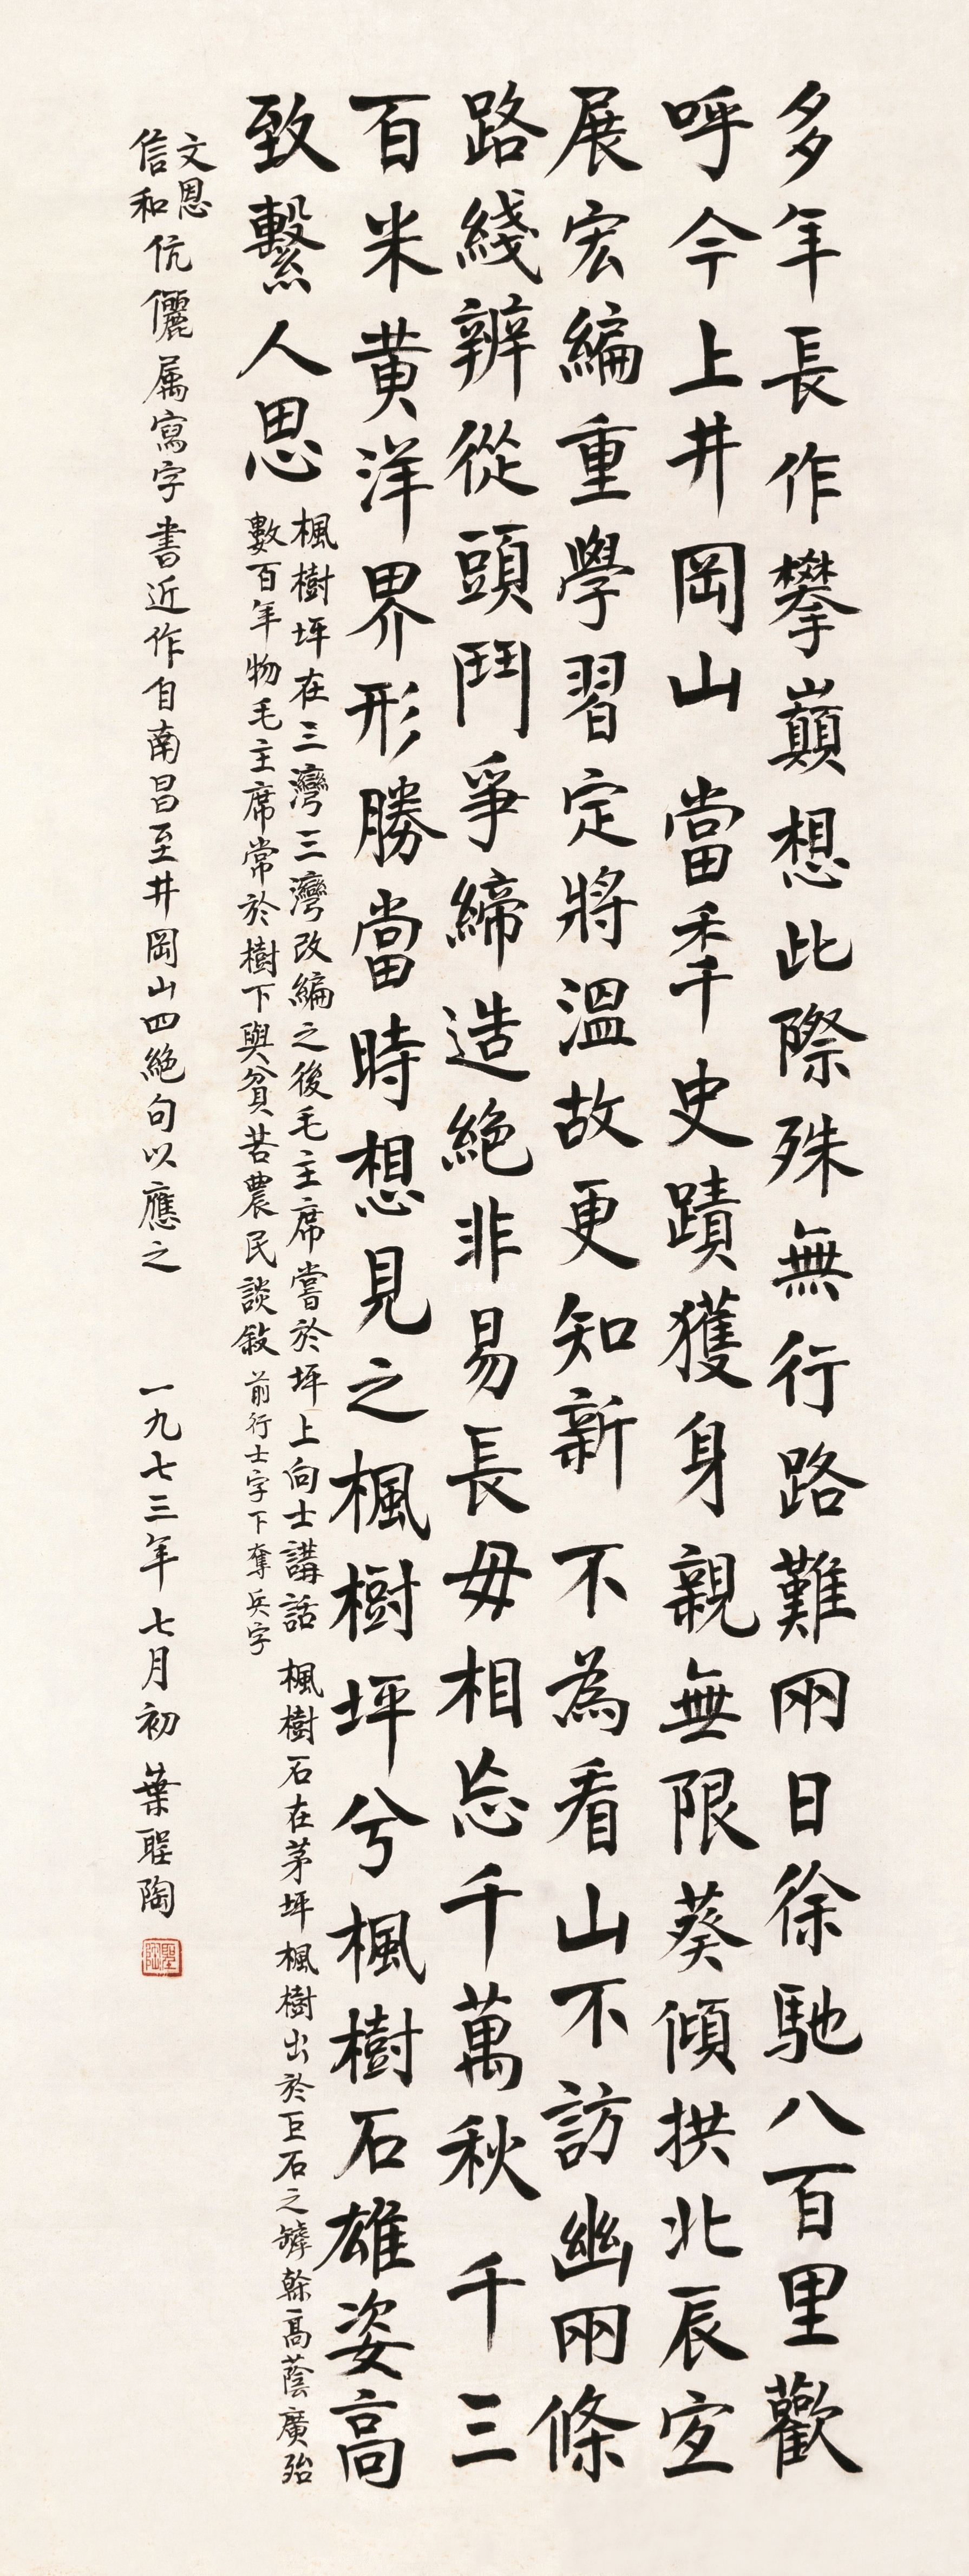 多年長作攀巔想此際殊無行路難兩日徐馳八百里歡
呼今上井岡山 當秊史蹟獲身親無限葵傾拱北辰宐
展宏編重學習定將溫故更知新 不為看山不訪幽兩條
路綫辨從頭鬥爭締造絕非易長毋相忘千萬秋 千三
百米黃洋界形勝當時想見之楓樹坪兮楓樹石雄姿高
致繫人思
楓樹坪在三灣三灣改編之後毛主席嘗於坪上向士講話 楓樹石在茅坪楓樹出於巨石之罅榦高蔭廣殆
數百年物毛主席常於樹下與貧苦農民談敘 前行士字下奪兵字
文恩
信和
伉儷属寫字書近作自南昌至井岡山四絕句以應之 一九七三年七月初 葉聖陶
聖陶